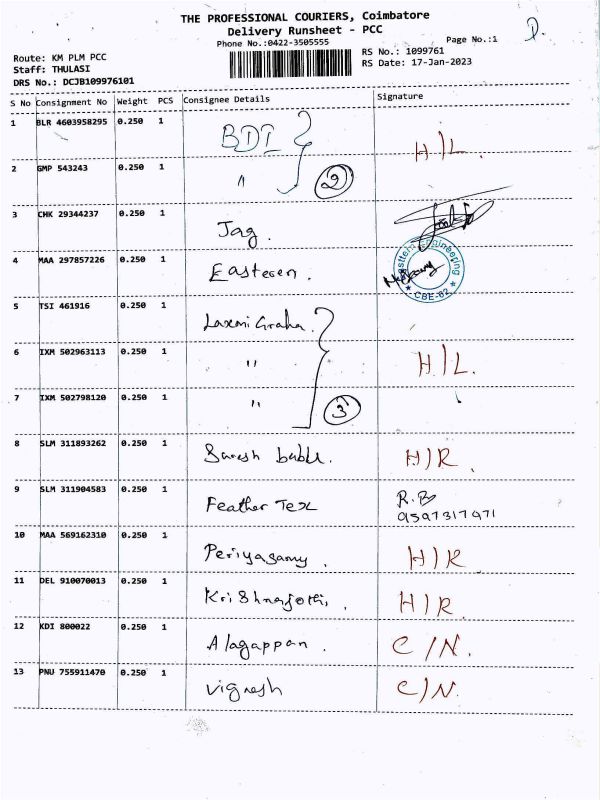 THE PROFESSIONAL COURIERS, Coimbatore
Delivery Runsheet - PCC
Phone No.:0422-3505555
Page No.:1
Route: KM PLM PCC
RS No.: 1099761
Staff: THULASI
RS Date: 17-Jan-2023
DRS No.: DCJB109976101
S No Consignment No Weight PCS Consignee Details Signature
1 BLR 4603958295 0.250 1 BDI H/L.
2 GMP 543243 0.250 1 " 2
3 CHK 29344237 0.250 1 Jag.
4 MAA 297857226 0.250 1 Easteren. CBE-02
5 TSI 461916 0.250 1 Laxmi Graha.
6 IXM 502963113 0.250 1 " H/L.
7 IXM 502798120 0.250 1 " 3
8 SLM 311893262 0.250 1 Suresh babu. H/R.
9 SLM 311904583 0.250 1 Feather Tex R.B
9597317971
10 MAA 569162310 0.250 1 Periyasamy. H/R
11 DEL 910070013 0.250 1 Krishnajothi, H/R.
12 KDI 800022 0.250 1 Alagappan. C/N.
13 PNU 755911470 0.250 1 vignesh C/N.